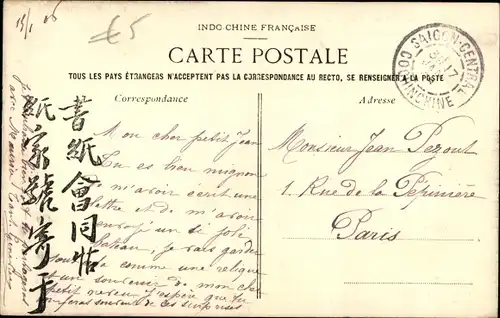 15/1 06
£5
INDO-CHINE FRANÇAISE
CARTE POSTALE
TOUS LES PAYS ÉTRANGERS N'ACCEPTENT PAS LA CORRESPONDANCE AU RECTO, SE RENSEIGNER A LA POSTE
SAIGON-CENTRAL
COCHINCHINE
Correspondance
Adresse
Mon cher petit Jean
Tu es bien mignon
m'avoir écrit une
lettre et de m'avoir
envoyé un si joli
bateau, je vais garder
comme une relique
un souvenir de mon cher
petit neveu. J'espère que tu
souvent de ces surprises
Monsieur Jean Pezout
1. Rue de la Pépinière
Paris
書紙會同帖
紙家號寄手